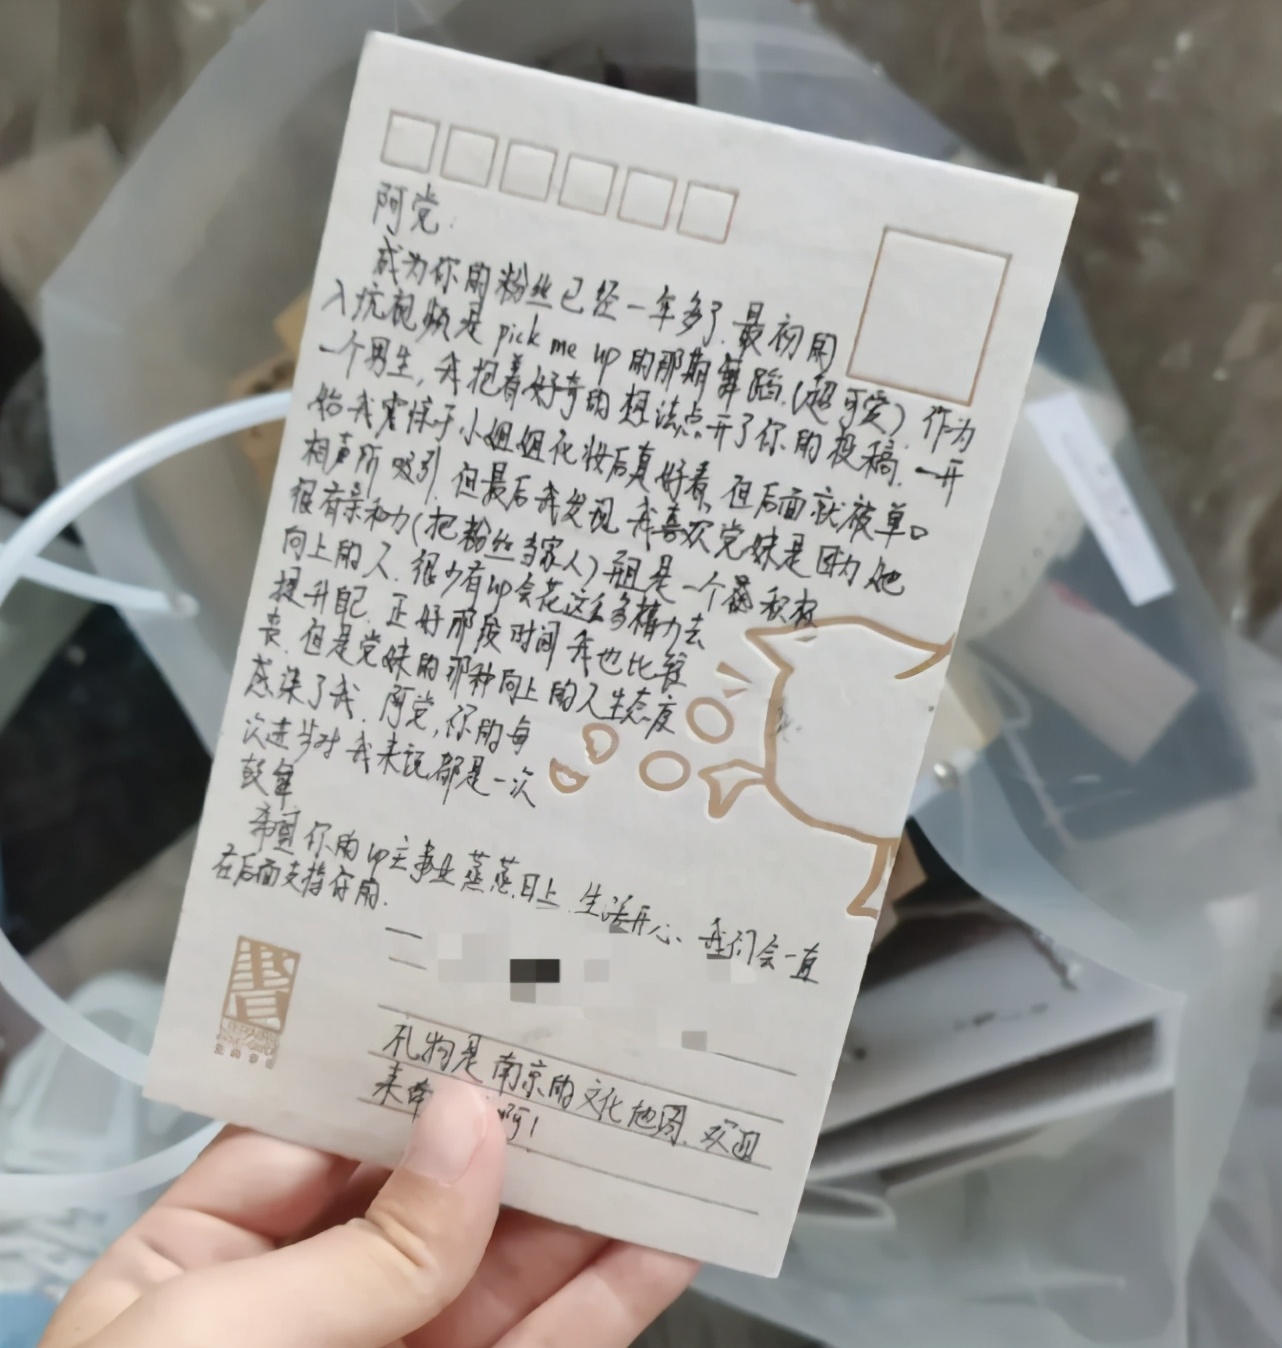 阿党:
成为你的粉丝已经一年多了.最初的
入坑视频是pick me up的那期舞蹈.(超可爱).作为
一个男生,我抱着好奇的想法点开了你的投稿.一开
始我震惊于小姐姐化妆后真好看,但后面就被单口
相声所吸引.但最后我发现,我喜欢党妹是因为她
很有亲和力(把粉丝当家人)而且是一个积极
向上的人.很少有up会花这么多精力去
提升自己.正好那段时间我也比较
丧.但是党妹的那种向上的人生态度
感染了我.阿党,你的每
次进步对我来说都是一次
鼓舞
希望你的up主事业蒸蒸日上.生活开心、我们会一直
在后面支持你的.
礼物是南京的文化地图.欢迎
来南 啊!